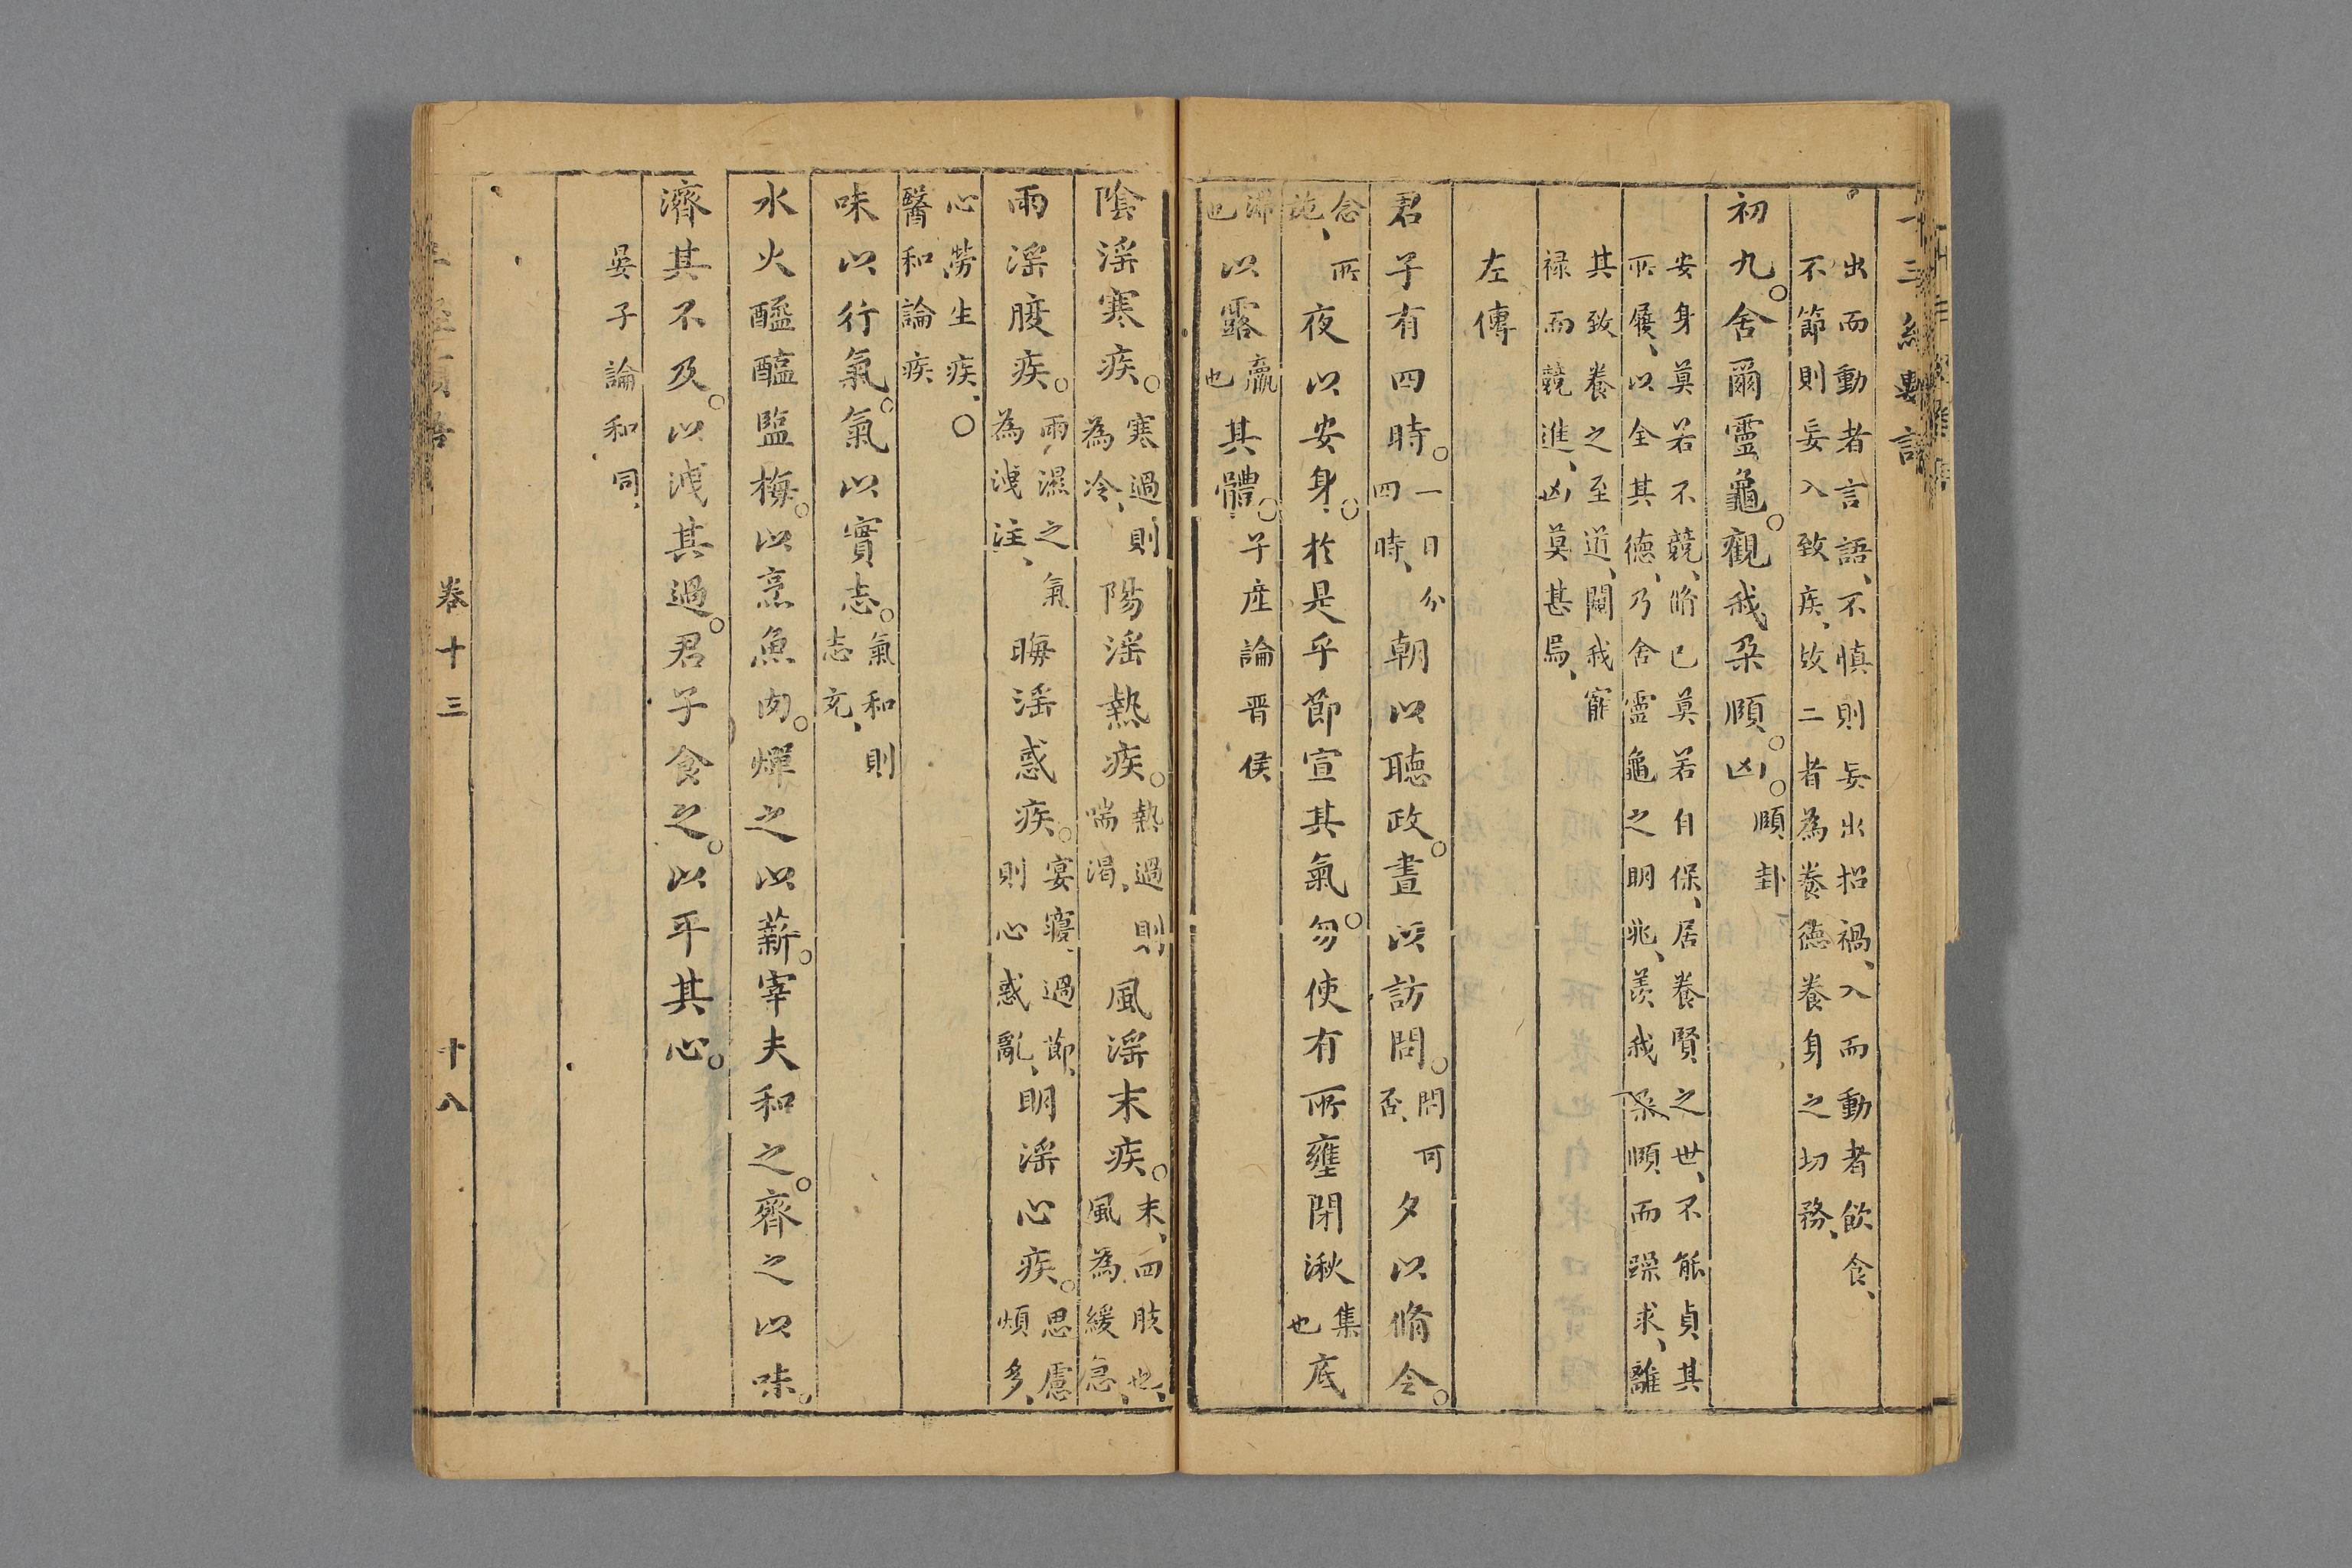 十三經類語
出而動者言語、不慎則妄出招禍、入而動者飲食、
不節則妄入致疾、故二者為養德養身之切務、
初九。舍爾靈龜。觀我朶頤。凶。頤卦
安身莫若不競、脩己莫若自保、居養賢之世、不能貞其
所履、以全其德、乃舍靈龜之明兆、羨我朶頤而躁求、離
其致養之至道、闚我寵
祿而競進、凶莫甚焉、
左傳
君子有四時。一日分四時、朝以聽政。晝以訪問。問可否、夕以脩令。
念所施、夜以安身。於是乎節宣其氣。勿使有所壅閉湫集也底
滯也以露羸也其體。子産論晉侯
陰淫寒疾。寒過則為冷、陽淫熱疾。熱過則喘渴、風淫末疾。末、四肢也、風為緩急、
雨淫腹疾。雨濕之氣為洩注、晦淫惑疾。宴寢過節、則心惑亂、明淫心疾。思慮煩多、
心勞生疾、○醫和論疾
味以行氣。氣以實志。氣和則志充、
水火醯醢鹽梅。以烹魚肉。燀之以薪。宰夫和之。齊之以味。
濟其不及。以洩其過。君子食之。以平其心。
晏子論和同、
卷十三
十八